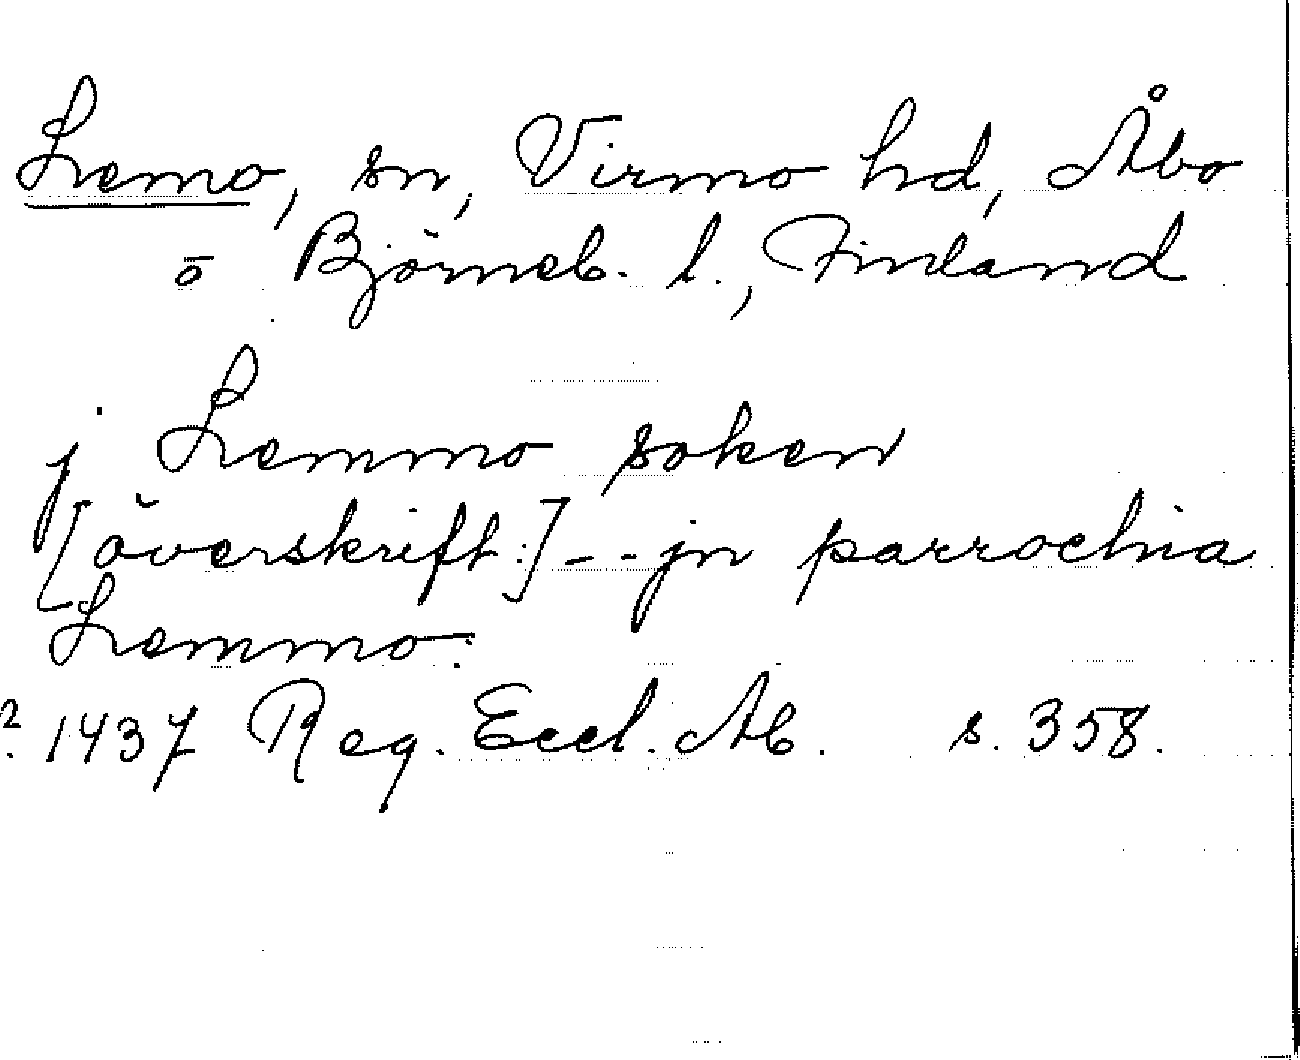 Lemo, sn, Virmo hd, Åbo
o Björneb. l., Finland
j Lemmo soken
[överskrift:] - - jn parrochia
Lemmo.
2. 1437 Reg. Eccl. Ab. s. 358.